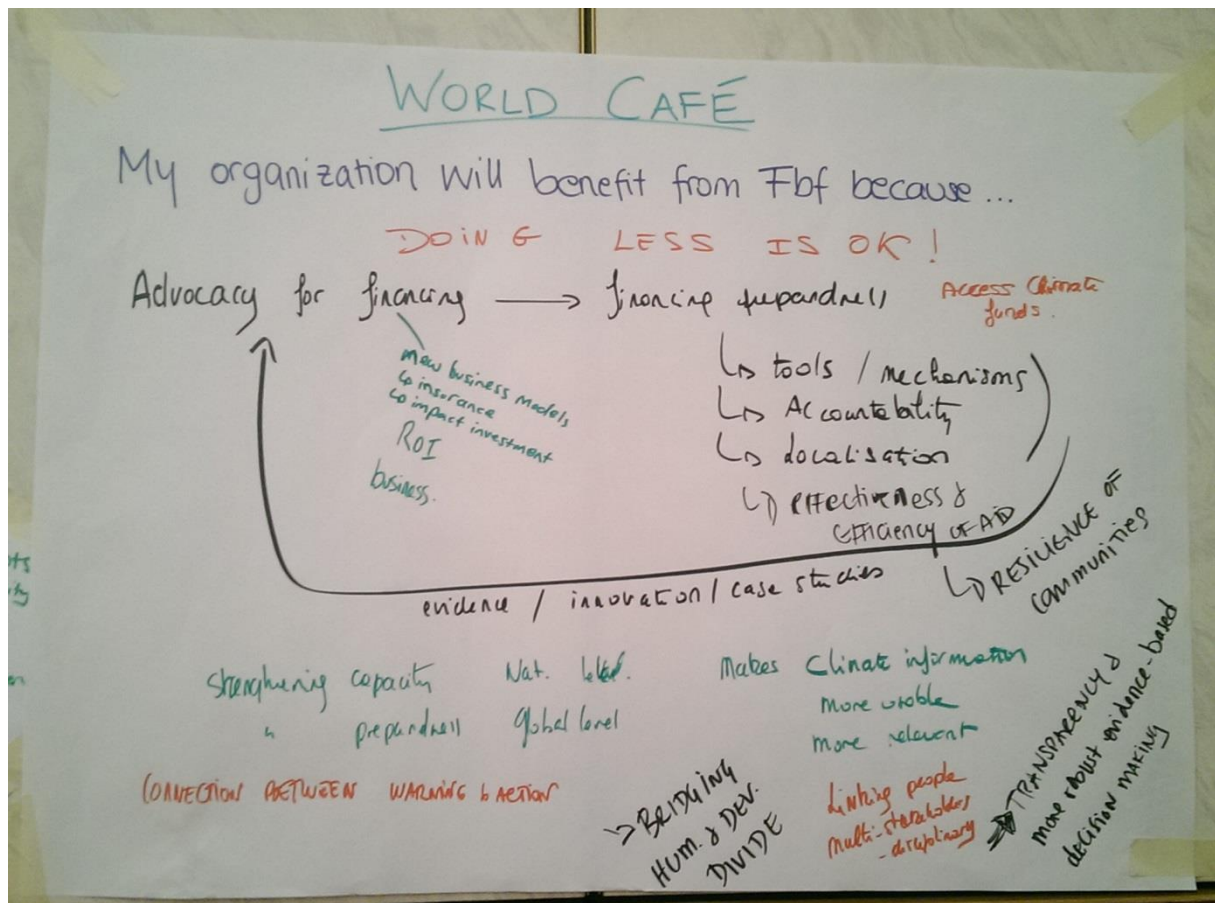 WORLD CAFÉ
My organization will benefit from Fbf because...
DOING LESS IS OK!
Advocacy for financing → financing prepardness
Access Climate
funds.
new business models
↳ insurance
↳ impact investment
ROI
business.
↳ tools / mechanisms
↳ Accountability
↳ Localisation
↳ effectiveness &
efficiency of AID
↳ RESILIENCE OF
communities
evidence / innovation / case studies
Strenghtening capacity Nat. level.
" prepardness Global level
Makes Climate information
more usable
more relevant
CONNECTION BETWEEN WARNING & ACTION
→ BRIDGING
HUM. & DEV.
DIVIDE
Linking people
multi-stakeholders
- disciplinary
→ TRANSPARENCY &
more robust evidence-based
decision making